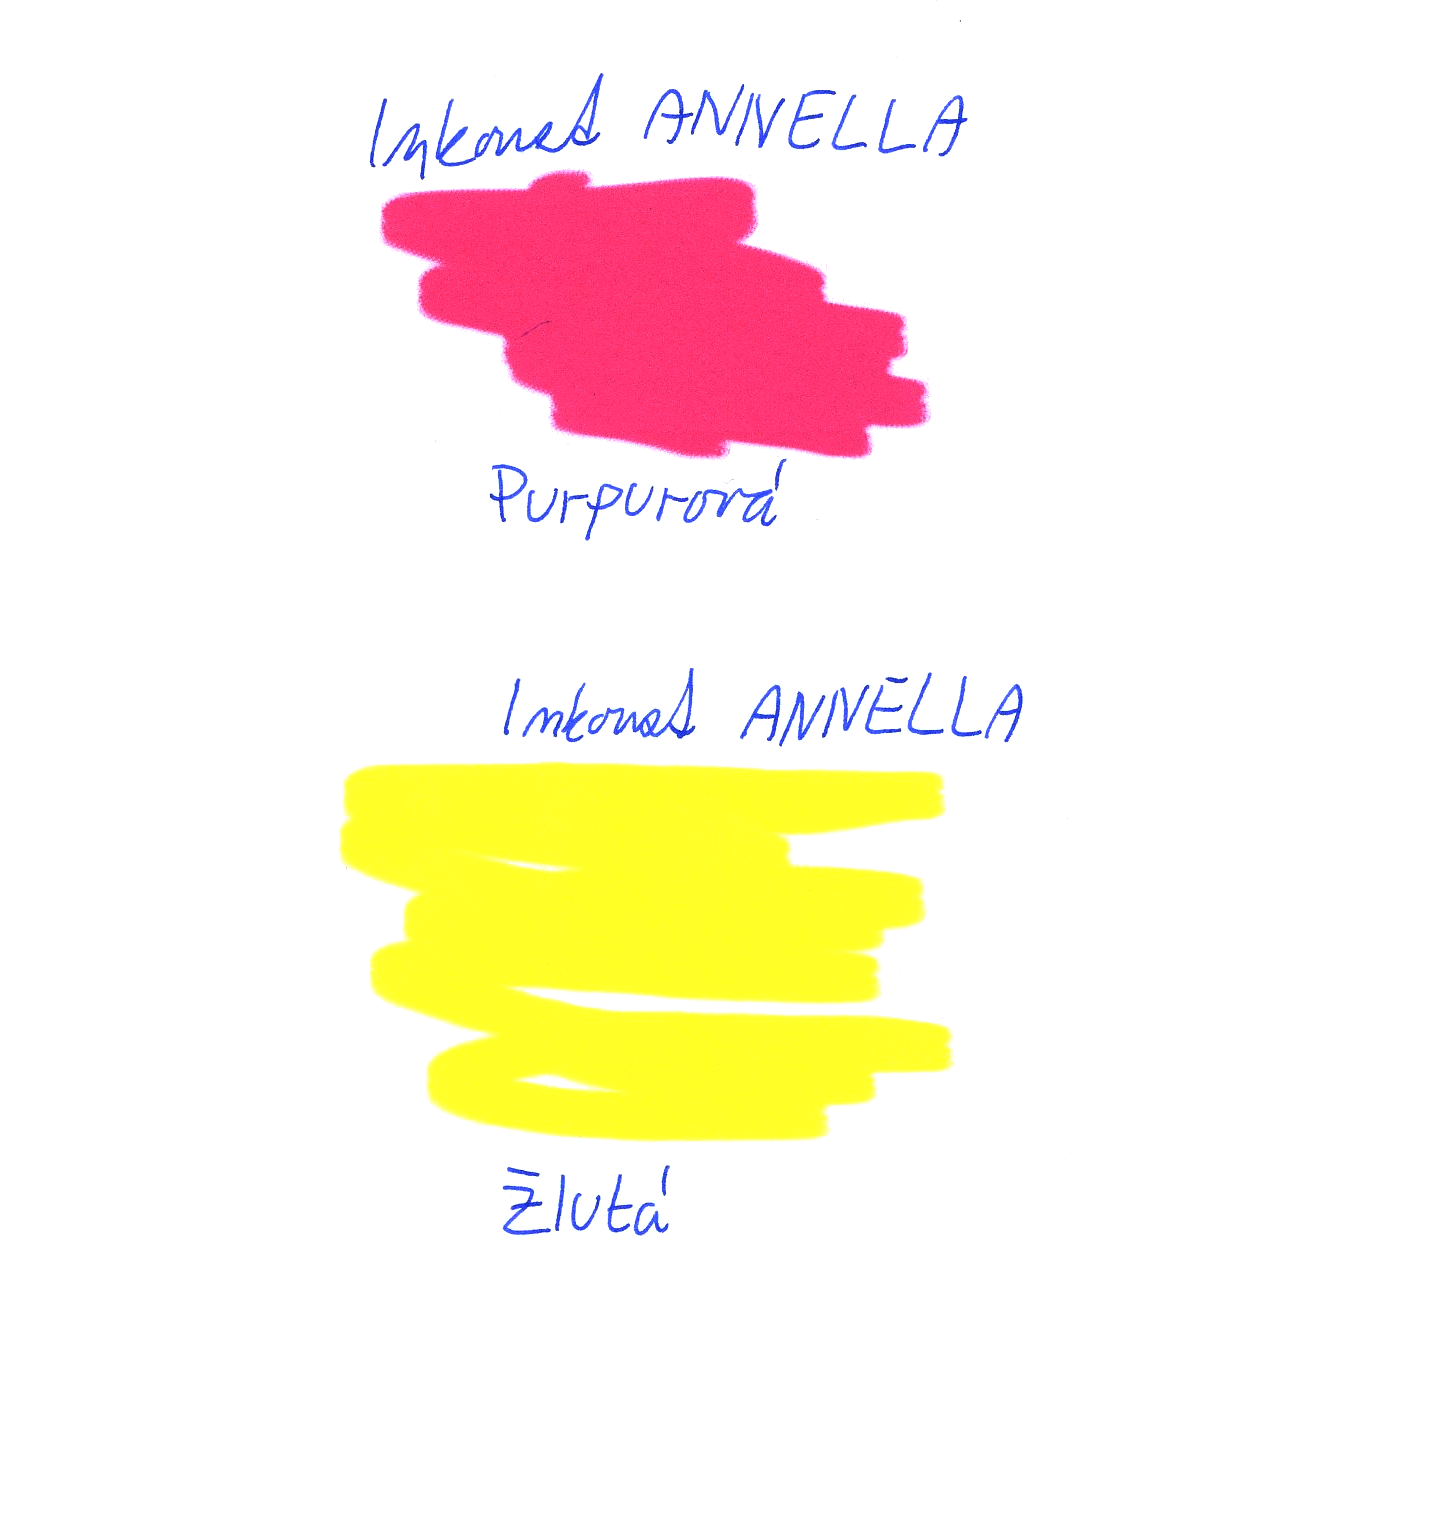 Inkoust ANNELLA
Purpurová
Inkoust ANNELLA
Žlutá